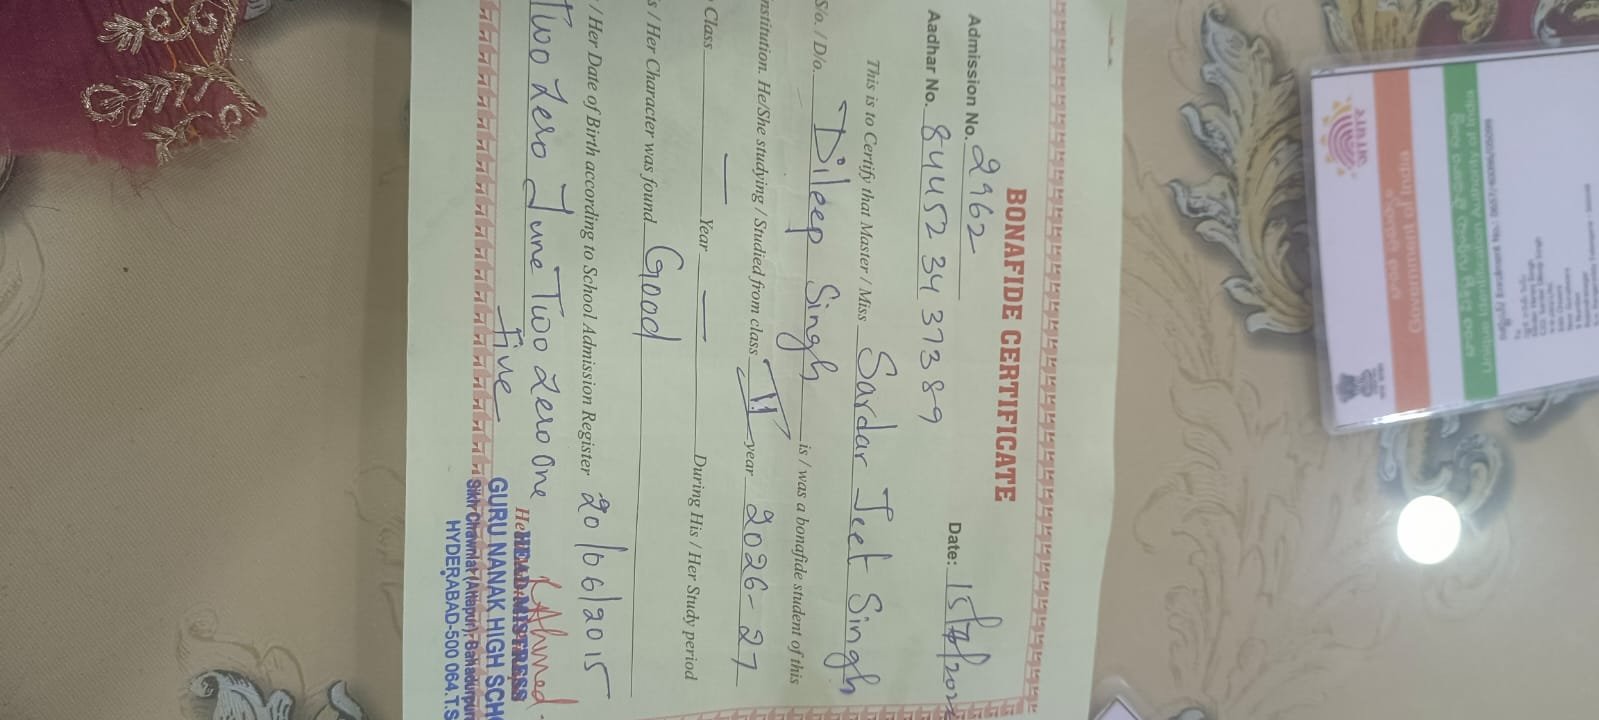 BONAFIDE CERTIFICATE
Admission No. 2962
Date: 15/
Aadhar No. 84452 34 37389
This is to Certify that Master / Miss Sardar Jeet Singh
S/o. / D/o. Dileep Singh is / was a bonafide student of this
nstitution. He/She studying / Studied from class VI year 2026-27
Class — Year — During His / Her Study period
s / Her Character was found Good
/ Her Date of Birth according to School Admission Register 20/06/2015
Two Zero June Two Zero One
five
HEAD MISTRESS
GURU NANAK HIGH SCH
Sikh Chawniat (Attapur), Bahadurpur
HYDERABAD-500 064.T.S
Government of India
Unique Identification Authority of India